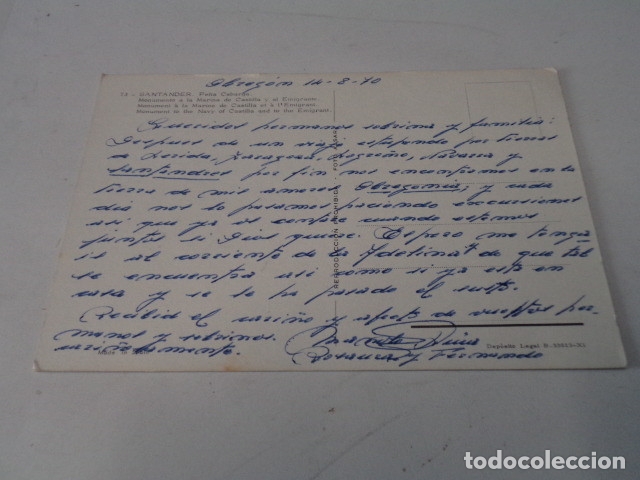 Obregón 14-8-70
12 - SANTANDER. Peña Cabarga.
Monumento a la Marina de Castilla y al Emigrante.
Monument à la Marine de Castilla et à l'Emigrant.
Monument to the Navy of Castilla and to the Emigrant.
Queridos hermanos sobrina y familia:
Despues de un viaje estupendo por tierras
a Lerida, Zaragoza, Logroño, Navarra y
Santander por fin nos encontramos en la
tierra de mis amores Obregonia; y cada
dia nos lo pasamos haciendo excursiones
asi que ya os contare cuando estemos
juntos si Dios quiere. Espero me tengais
al corriente de la de que tal
se encuentra asi como si ya esta en
casa y se le ha pasado el susto.
Recibid el cariño y afecto de vuestros her-
manos y sobrinos.
cariñosamente.
Rosaura y Fernando
REPRODUCCION PROHIBIDA
Made in
Depósito Legal B.
todocoleccion.net